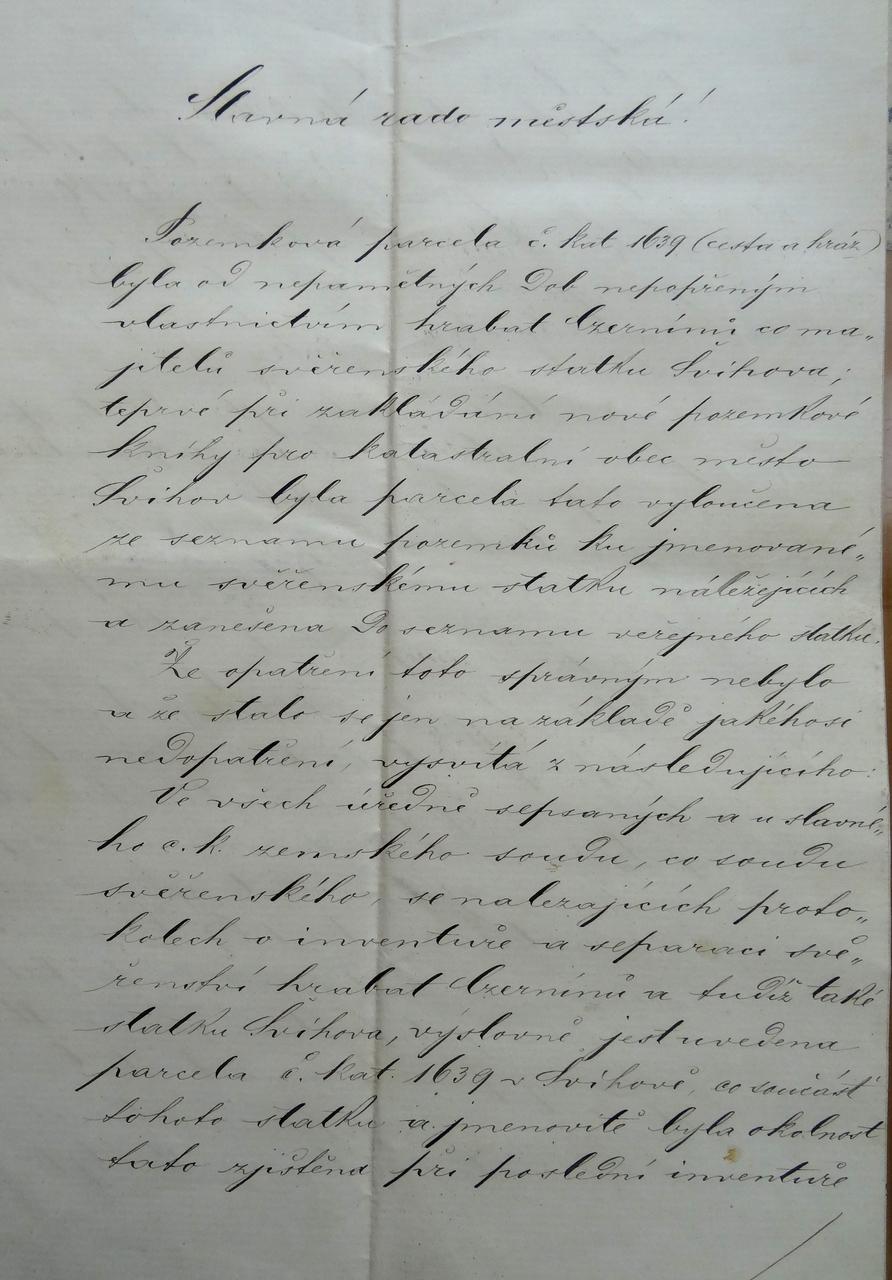 Slavná rado městská!
Pozemková parcela č. kat 1639 (cesta a hráz)
byla od nepamětných dob nepopřeným
vlastnictvím hrabat Czernínů co ma„
jitelů svěřenského statku Švihova;
teprvé při zakládání nové pozemkové
knihy pro katastralní obec město
Švihov byla parcela tato vyloučena
ze seznamu pozemků ku jmenované„
mu svěřenskému statku náležejících
a zanešena do seznamu veřejného statku.
Že opatření toto správným nebylo
a že stalo se jen na základě jakéhosi
nedopatření, vysvítá z následujícího:
Ve všech úředně sepsaných a u slavné„
ho c. k. zemského soudu, co soudu
svěřenského, se nalezajících proto„
kolech o inventuře a separaci svě„
řenství hrabat Czernínů a tudíž také
statku Švihova, výslovně jest uvedena
parcela č. kat. 1639 v Švihově, co součást
tohoto statku a jmenovitě byla okolnost
tato zjištěna při poslední inventuře